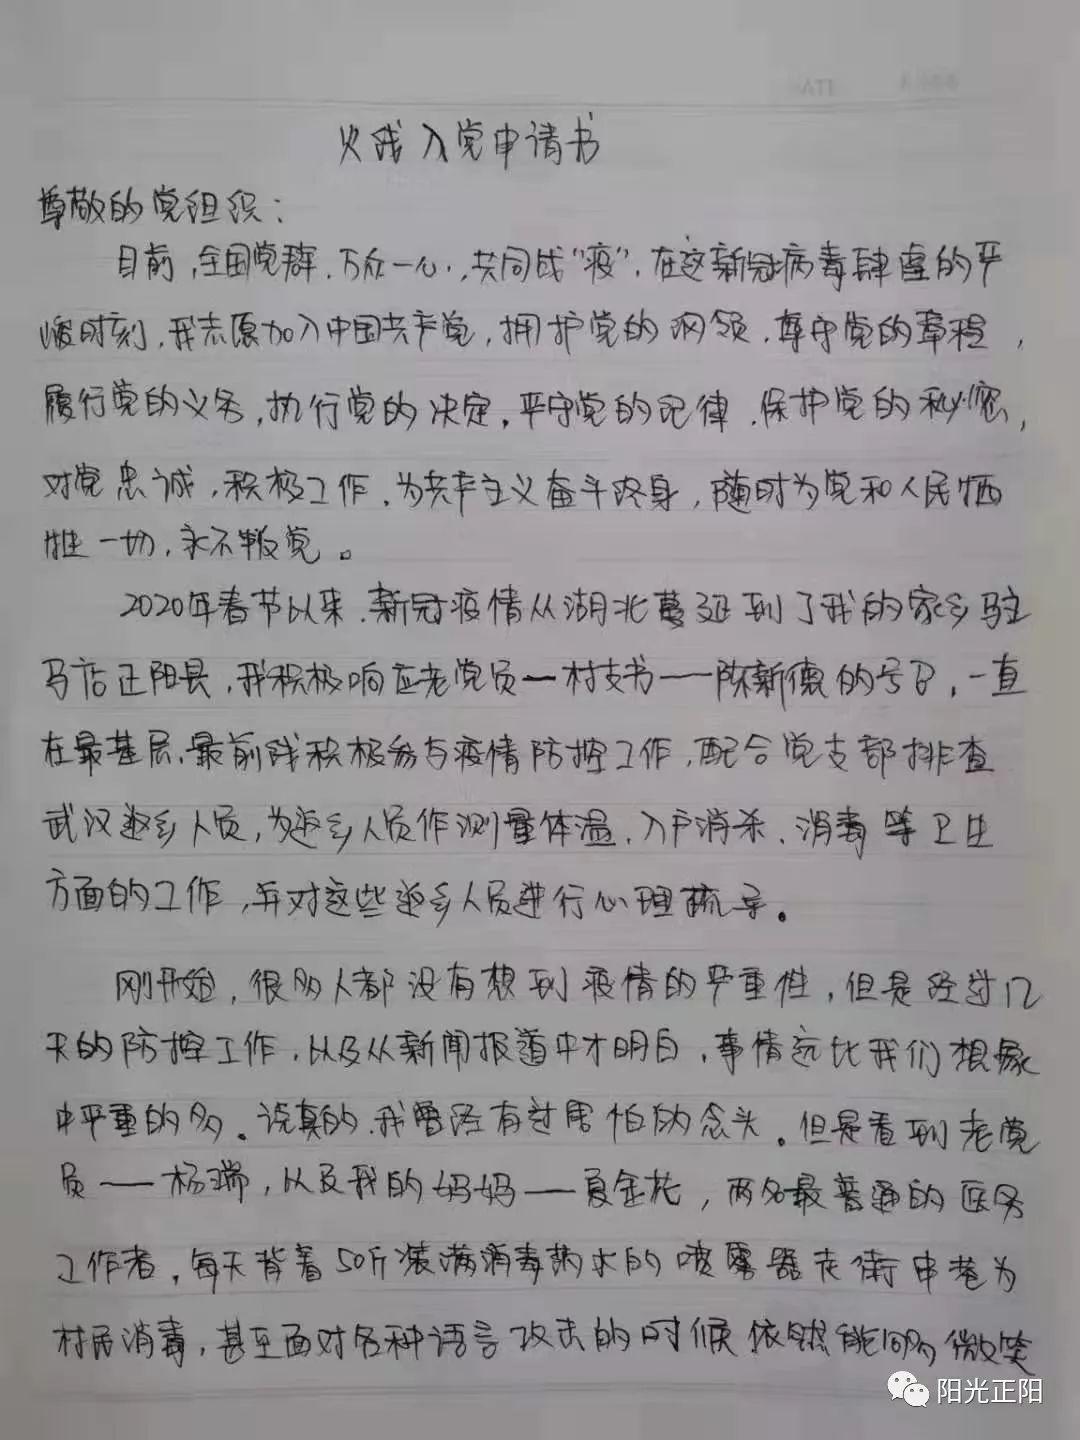 火线入党申请书
尊敬的党组织：
目前，全国党群，万众一心，共同战“疫”，在这新冠病毒肆虐的严
峻时刻，我志愿加入中国共产党，拥护党的纲领，尊守党的章程，
履行党的义务，执行党的决定，严守党的纪律，保护党的秘密，
对党忠诚，积极工作，为共产主义奋斗终身，随时为党和人民牺
牲一切，永不叛党。
2020年春节以来，新冠疫情从湖北蔓延到了我的家乡驻
马店正阳县，我积极响应老党员—村支书——陈新德的号召，一直
在最基层、最前线积极参与疫情防控工作，配合党支部排查
武汉返乡人员，为返乡人员作测量体温、入户消杀、消毒等卫生
方面的工作，并对这些返乡人员进行心理梳导。
刚开始，很多人都没有想到疫情的严重性，但是经过几
天的防控工作，以及从新闻报道中才明白，事情远比我们想象
中严重的多。说真的，我曾经有过害怕的念头。但是看到老党
员——杨瑞，以及我的妈妈——夏金花，两名最普通的医务
工作者，每天背着50斤装满消毒药水的喷雾器走街串巷为
村居消毒，甚至面对各种语言攻击的时候依然能够微笑
阳光正阳